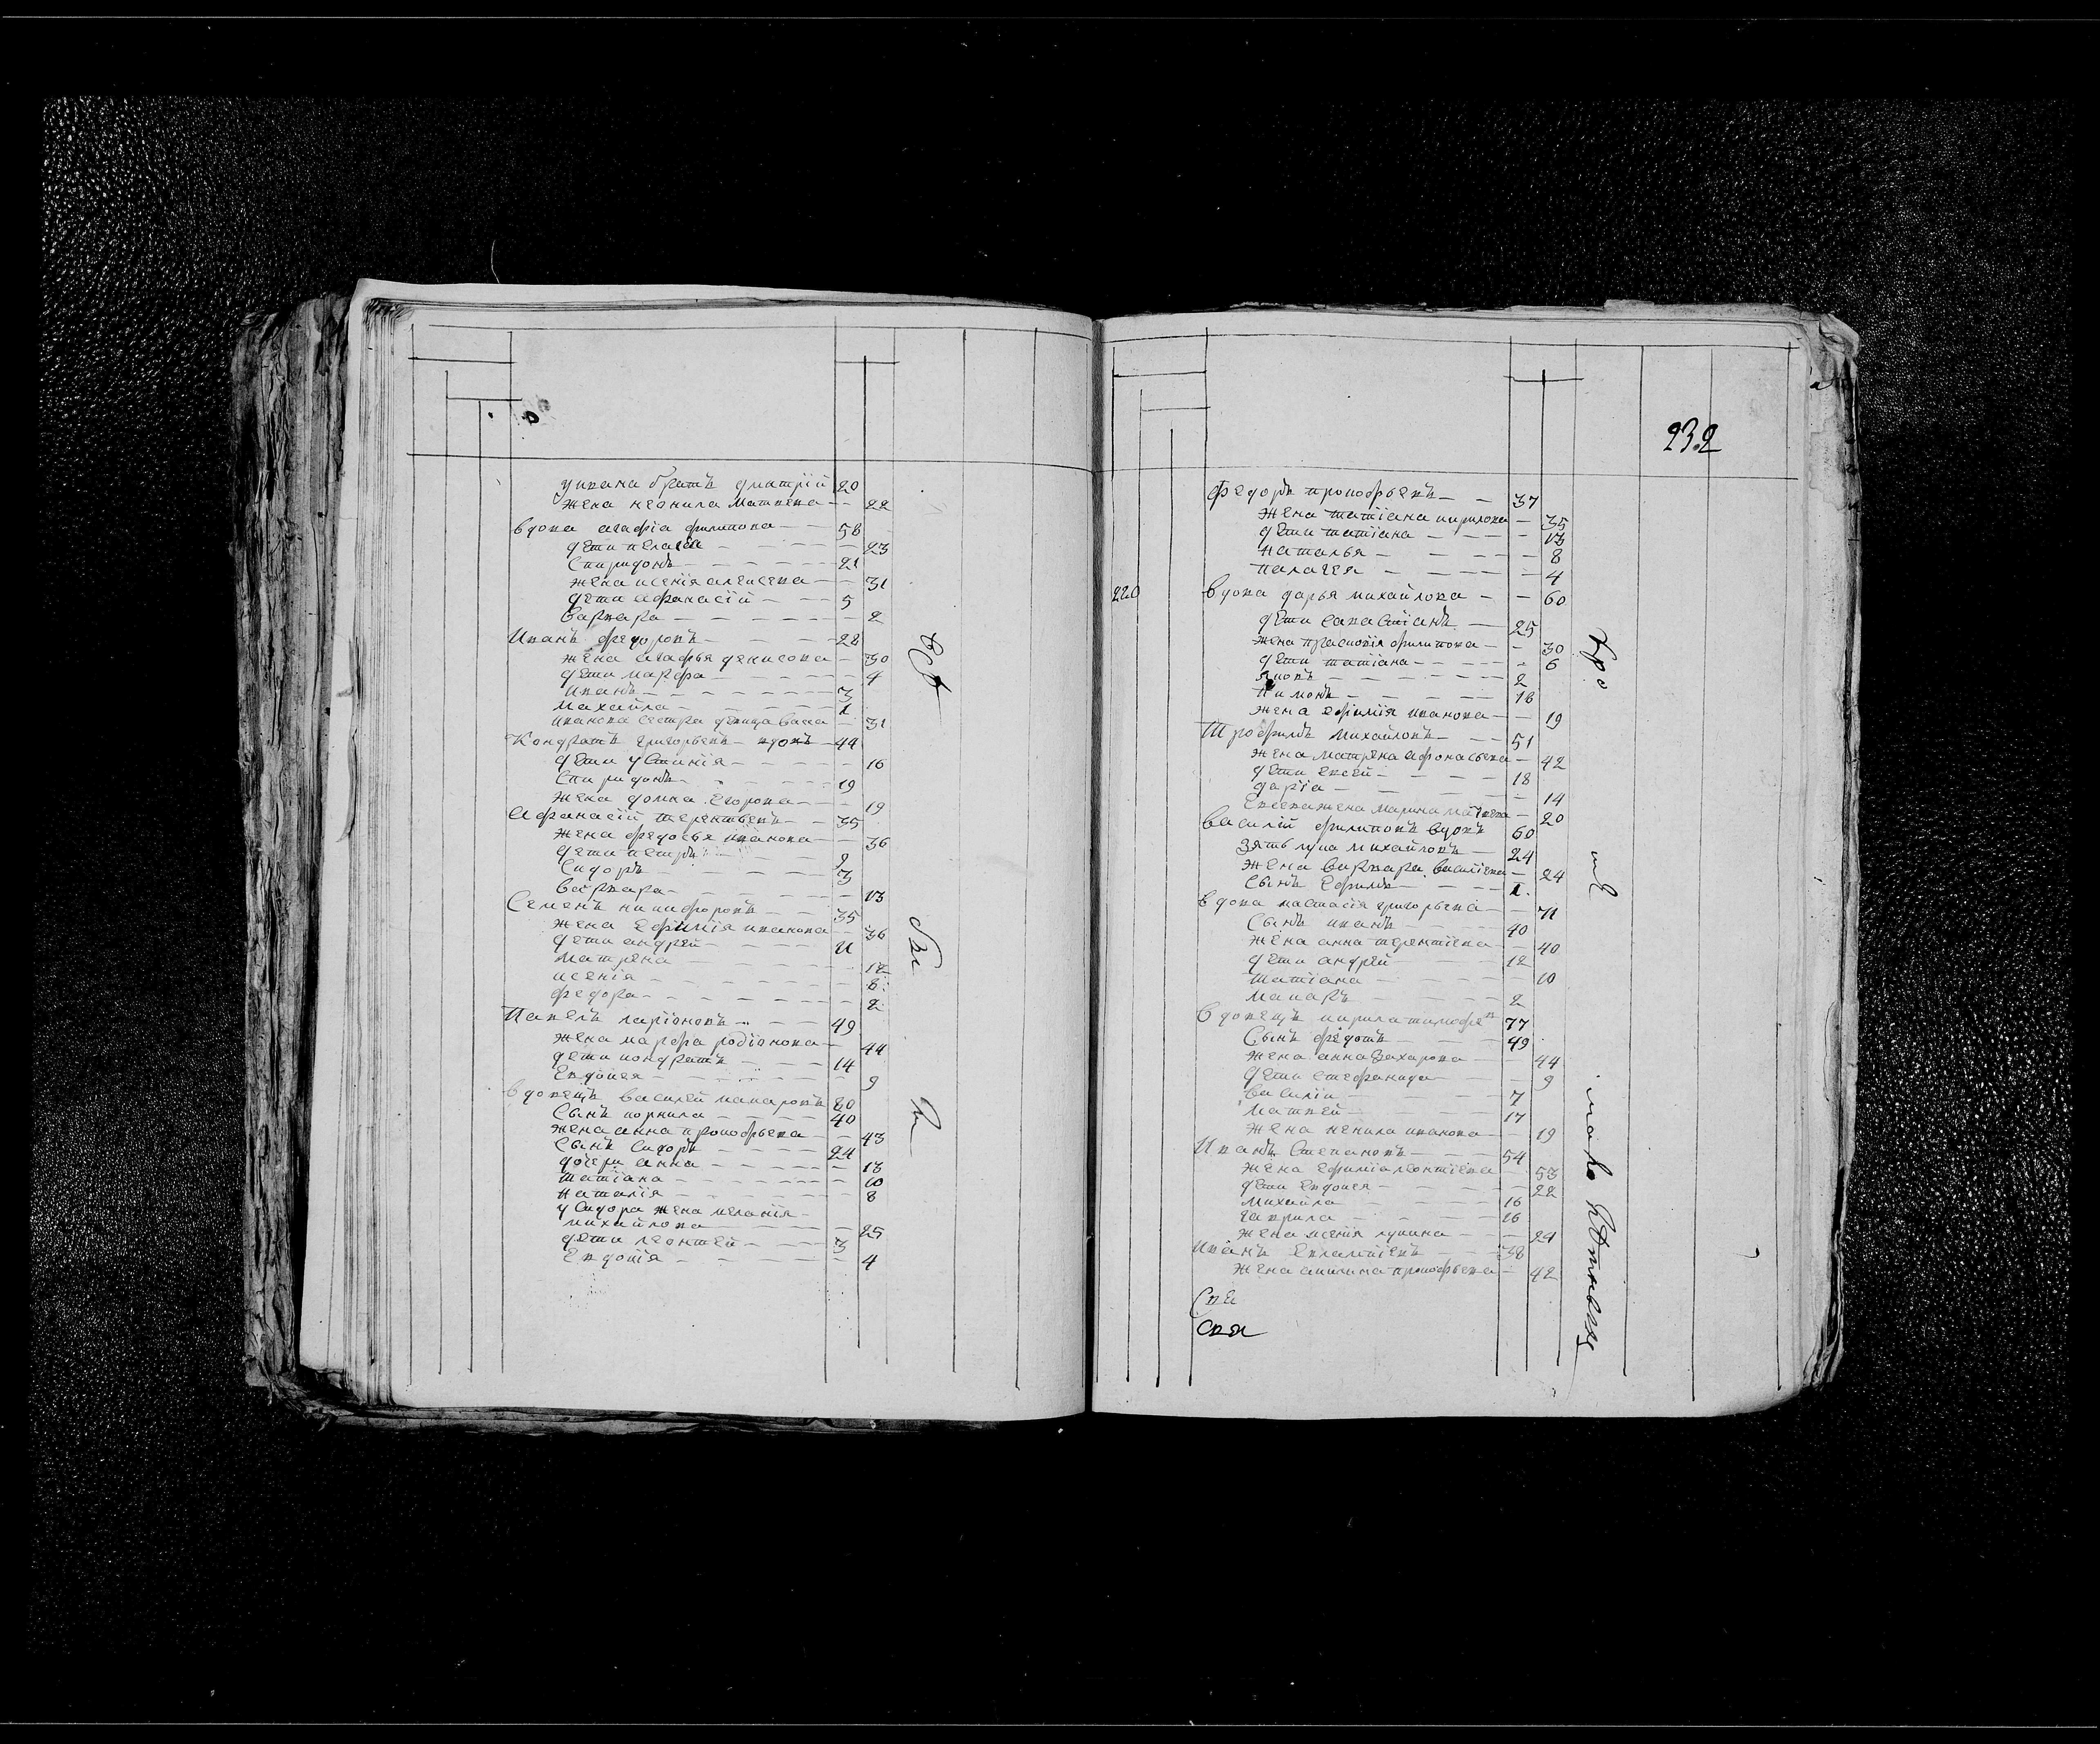 у ивана братъ дмитрий 20
жена неонила матвева 22
вдова агафiа филипова 58
дети пелагея 23
Спиридонъ 21
жена ксенiя алексева 31
дети афанасiй 5
варвара 2
Иванъ федоровъ 28
жена агафья денисова 30
дети марфа 4
иванъ 3
михайла 1
иванова сестра девица васа 31
Кондратъ григорьевъ вдовъ 44
дети устинiя 16
Спиридонъ 19
жена домна егорова 19
Афанасiй терентьевъ 35
жена федосья иванова 36
дети петръ 9
Сидоръ 3
варвара 13
Семенъ никифоровъ 35
жена ефимiя иванова 36
дети андрей 11
матрена 12
ксенiя 8
федора 2
Павелъ ларiоновъ 49
жена марфа родiонова 44
дети кондратъ 14
Евдокея 9
вдовецъ василей макаровъ 80
Сынъ корнила 40
жена анна прокофьева 43
Сынъ Сидоръ 24
дочери анна 18
татiана 10
наталiя 8
у Сидора жена меланiя
михайлова 25
дети леонтей 3
Евдокiя 4
232
федоръ прокофьевъ 37
жена татiана кирилова 35
дети татiана 13
наталья 8
палагея 4
220 вдова дарья михайлова 60
дети савастiанъ 25
жена прасковiя филипова 30
дети татiана 6
яковъ 2
пимонъ 18
жена ефимiя иванова 19
Трофимъ михайловъ 51
жена матрена афонасьева 42
дети евсей 18
дарiа 14
Евсева жена марина матвева 20
василiй филиповъ вдовъ 60
зять лука михайловъ 24
жена варвара василiева 24
Сынъ Ефимъ 1
вдова настасiя григорьева 71
Сынъ иванъ 40
жена анна терентiева 40
дети андрей 12
татiана 10
макаръ 2
вдовецъ кирила тимофе в 77
Сынъ федотъ 49
жена анна захарова 44
дети стефанида 9
василiи 7
матвей 17
жена ненила иванова 19
Иванъ Степановъ 54
жена ефимiа леонтiева 53
дети евдокея 22
михайла 16
гаврила 16
жена ксенiя лукина 24
Иванъ Евлампiевъ 38
жена акилина прокофьева 42